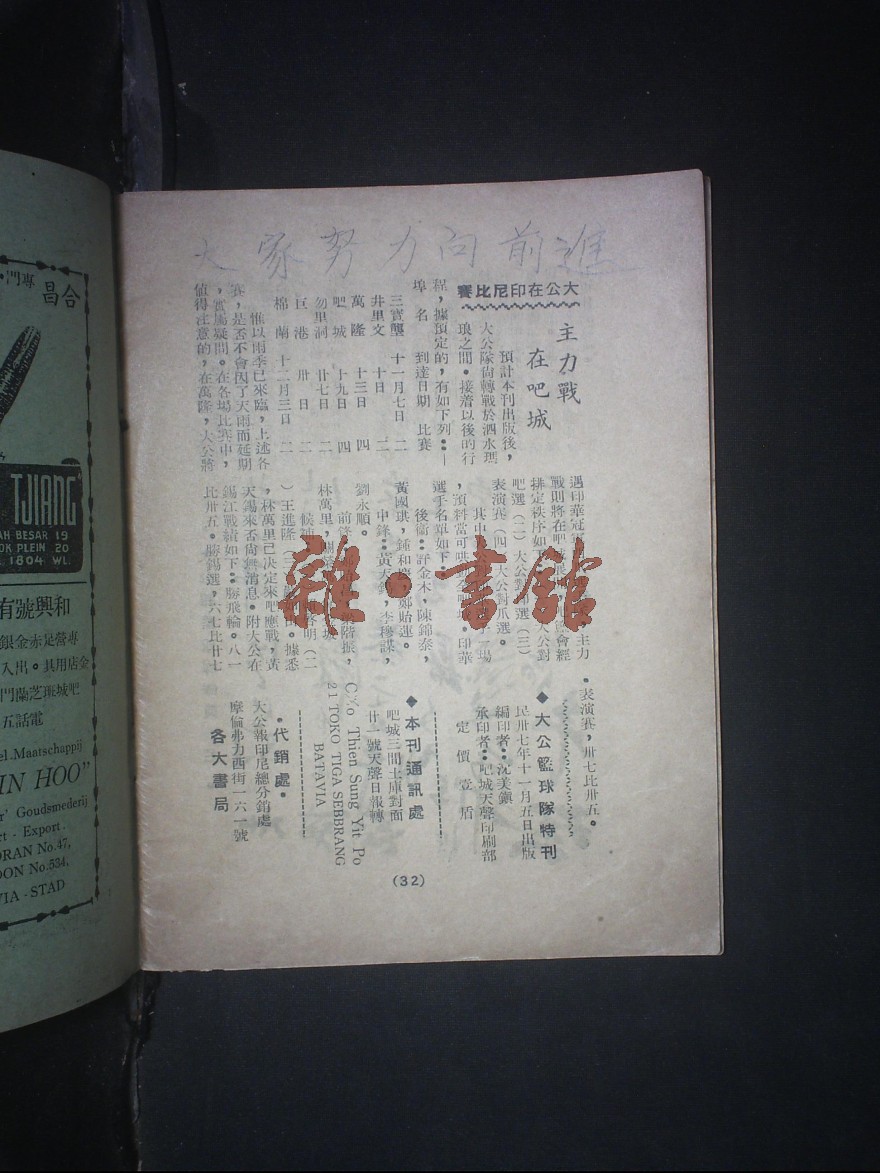 大家努力向前進
大公在印尼比賽
主力戰
在吧城
預計本刊出版後，
大公隊尙轉戰於泗水瑪
琅之間。接着以後的行
程，據預定的，有如下列：—
埠名 到達日期 比賽
三寶壟 十一月七日 二
井里文 十日 二
萬隆 十三日 四
吧城 十九日 四
勿里詞 廿七日 二
巨港 卅日 二
棉蘭 十二月三日 二
惟以雨季已來臨，上述各
賽，是否不會因了天雨而延期
，實屬疑問。在各場比賽中，
値得注意的，在萬隆，大公將
遇印華冠
主力
戰則將在吧
會經
排定秩序如下
公對
吧選（二）大公對
選（三）
表演賽（四）大公對爪選。
其中
場
，預料當可哄動吧城。印華
選手名單如下：
後衞：許金木，陳錦泰，
黃國珙，鍾和
鄭貽連。
中鋒：黃天錫，李穆謀，
劉永順。
前鋒
階振，
林萬里，
候補
啓明（二
）王進隆（
。據悉
，林萬里已決定來吧應戰，黃
天錫來否尙無消息。附大公在
錫江戰績如下：勝飛輪。八一
比卅五。勝錫選，六七比廿七
。表演賽，卅七比卅五。
◆大公籃球隊特刊
民卅七年十一月五日出版
編印者：沈美鎭
承印者：吧城天聲印刷部
定價壹盾
◆本刊通訊處
吧城三間土庫對面
廿一號天聲日報轉
C/o Thien Sung Yit Po
21 TOKO TIGA SEBBRANG
BATAVIA
·代銷處·
大公報印尼總分銷處
摩倫弗力西街一六一號
各大書局
(32)
雜·書館
專門
合昌
TJIANG
AH BESAR 19
OK PLEIN 20
1804 WL.
和興號有
專營足赤金銀
入出。其用店金
吧城班芝蘭門
電話五
el.Maatschappij
IN HOO"
r' Goudsmederij
rt - Export.
ORAN No.47,
OON No.534,
VIA - STAD